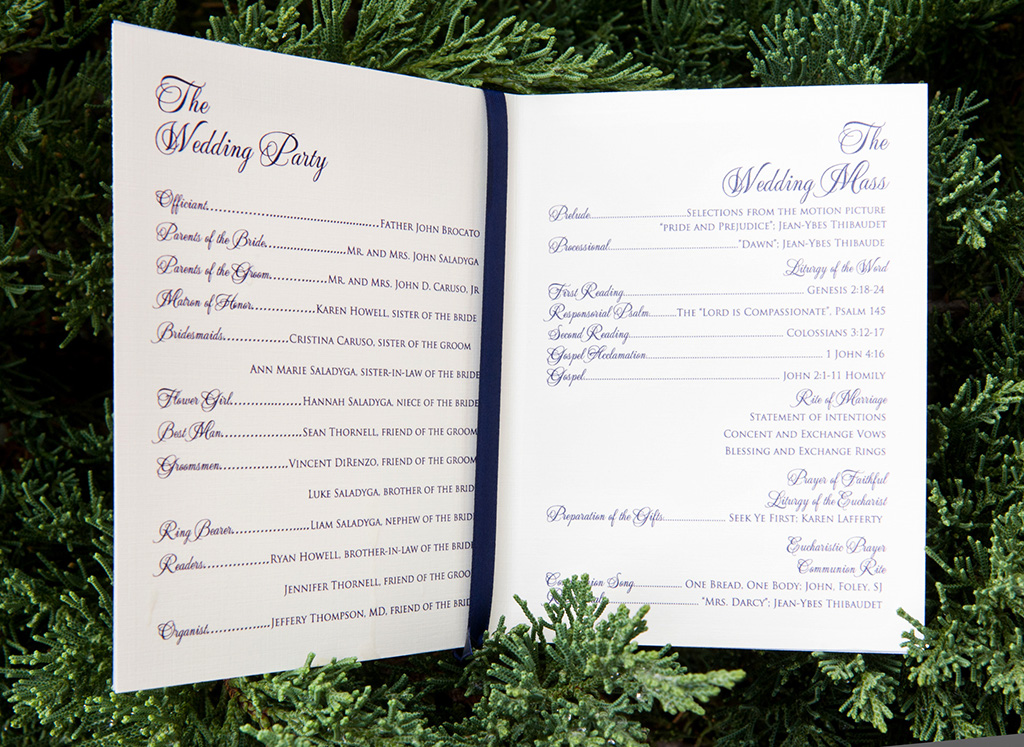 The
Wedding Party
Officiant..............................FATHER JOHN BROCATO
Parents of the Bride..................MR. AND MRS. JOHN SALADYGA
Parents of the Groom.............MR. AND MRS. JOHN D. CARUSO, JR
Matron of Honor.............KAREN HOWELL, SISTER OF THE BRIDE
Bridesmaids..............CRISTINA CARUSO, SISTER OF THE GROOM
ANN MARIE SALADYGA, SISTER-IN-LAW OF THE BRIDE
Flower Girl...............HANNAH SALADYGA, NIECE OF THE BRIDE
Best Man.................SEAN THORNELL, FRIEND OF THE GROOM
Groomsmen..............VINCENT DIRENZO, FRIEND OF THE GROOM
LUKE SALADYGA, BROTHER OF THE BRID
Ring Bearer................LIAM SALADYGA, NEPHEW OF THE BRID
Readers.............RYAN HOWELL, BROTHER-IN-LAW OF THE BRID
JENNIFER THORNELL, FRIEND OF THE GROO
Organist.............JEFFERY THOMPSON, MD, FRIEND OF THE BRID
The
Wedding Mass
Prelude....................SELECTIONS FROM THE MOTION PICTURE
"PRIDE AND PREJUDICE"; JEAN-YBES THIBAUDET
Processional..........................."DAWN"; JEAN-YBES THIBAUDE
Liturgy of the Word
First Reading........................................ GENESIS 2:18-24
Responsorial Psalm.......THE "LORD IS COMPASSIONATE", PSALM 145
Second Reading................................ COLOSSIANS 3:12-17
Gospel Acclamation........................................ 1 JOHN 4:16
Gospel............................................ JOHN 2:1-11 HOMILY
Rite of Marriage
STATEMENT OF INTENTIONS
CONCENT AND EXCHANGE VOWS
BLESSING AND EXCHANGE RINGS
Prayer of Faithful
Liturgy of the Eucharist
Preparation of the Gifts.............. SEEK YE FIRST; KAREN LAFFERTY
Eucharistic Prayer
Communion Rite
Song............ ONE BREAD, ONE BODY; JOHN, FOLEY, SJ
"MRS. DARCY"; JEAN-YBES THIBAUDET